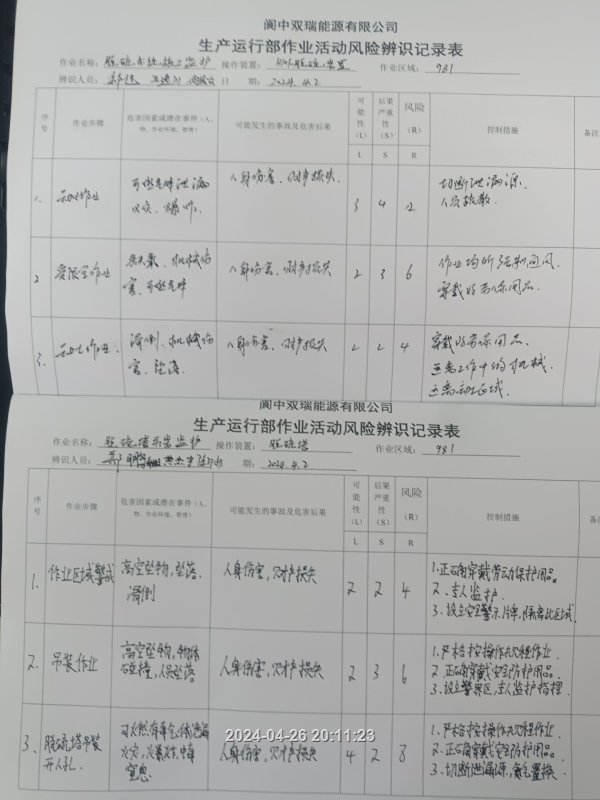 阆中双瑞能源有限公司
生产运行部作业活动风险辨识记录表
作业名称: 脱硫系统施工监护 操作装置: 脱硫装置 作业区域: 981
辨识人员: 日期: 2024.4.2
序号 作业步骤 危害因素或潜在事件(人、物、作业环境、管理) 可能发生的事故及危害后果 可能性(L) 后果严重性(S) 风险(R) 控制措施 备注
L S R
1. 动火作业 可燃气体泄漏 人身伤害、财产损失. 3 4 12 切断泄漏源.
火灾、爆炸. 人员疏散.
2 受限空作业 机械伤 人身伤害、财产损失 2 3 6 作业均所强制通风.
害、可燃气体 穿戴好劳保用品.
3. 动土作业. 滑倒、机械伤 人身伤害、财产损失 2 2 4 穿戴好劳保用品.
害、坠落. 远离工作中的机械.
远离动土区域.
阆中双瑞能源有限公司
生产运行部作业活动风险辨识记录表
作业名称: 脱硫塔吊装监护 操作装置: 脱硫塔 作业区域: 981
辨识人员: 期: 2024.4.2
序号 作业步骤 危害因素或潜在事件(人、物、作业环境、管理) 可能发生的事故及危害后果 可能性(L) 后果严重性(S) 风险(R) 控制措施 备注
L S R
1. 作业区域警戒 高空坠物,坠落. 人身伤害,财产损失 2 2 4 1.正确穿戴劳动保护用品.
滑倒 2.专人监护.
3.设立安全警示牌,隔离此区域.
2. 吊装作业 高空坠物,物体 人身伤害,财产损失 2 3 6 1.严格按操作规程作业.
碰撞,人员坠落 2.正确穿戴安全防护用品.
3.设立警界区,专人监护指挥.
3、 脱硫塔吊装 可燃有毒气体泄漏 人身伤害,财产损失 4 2 8 1.严格按操作规程作业.
开人孔. 火灾,爆炸,中毒 2.正确穿戴安全防护用品.
窒息. 3.切断泄漏源,氮气置换.
2024-04-26 20:11:23